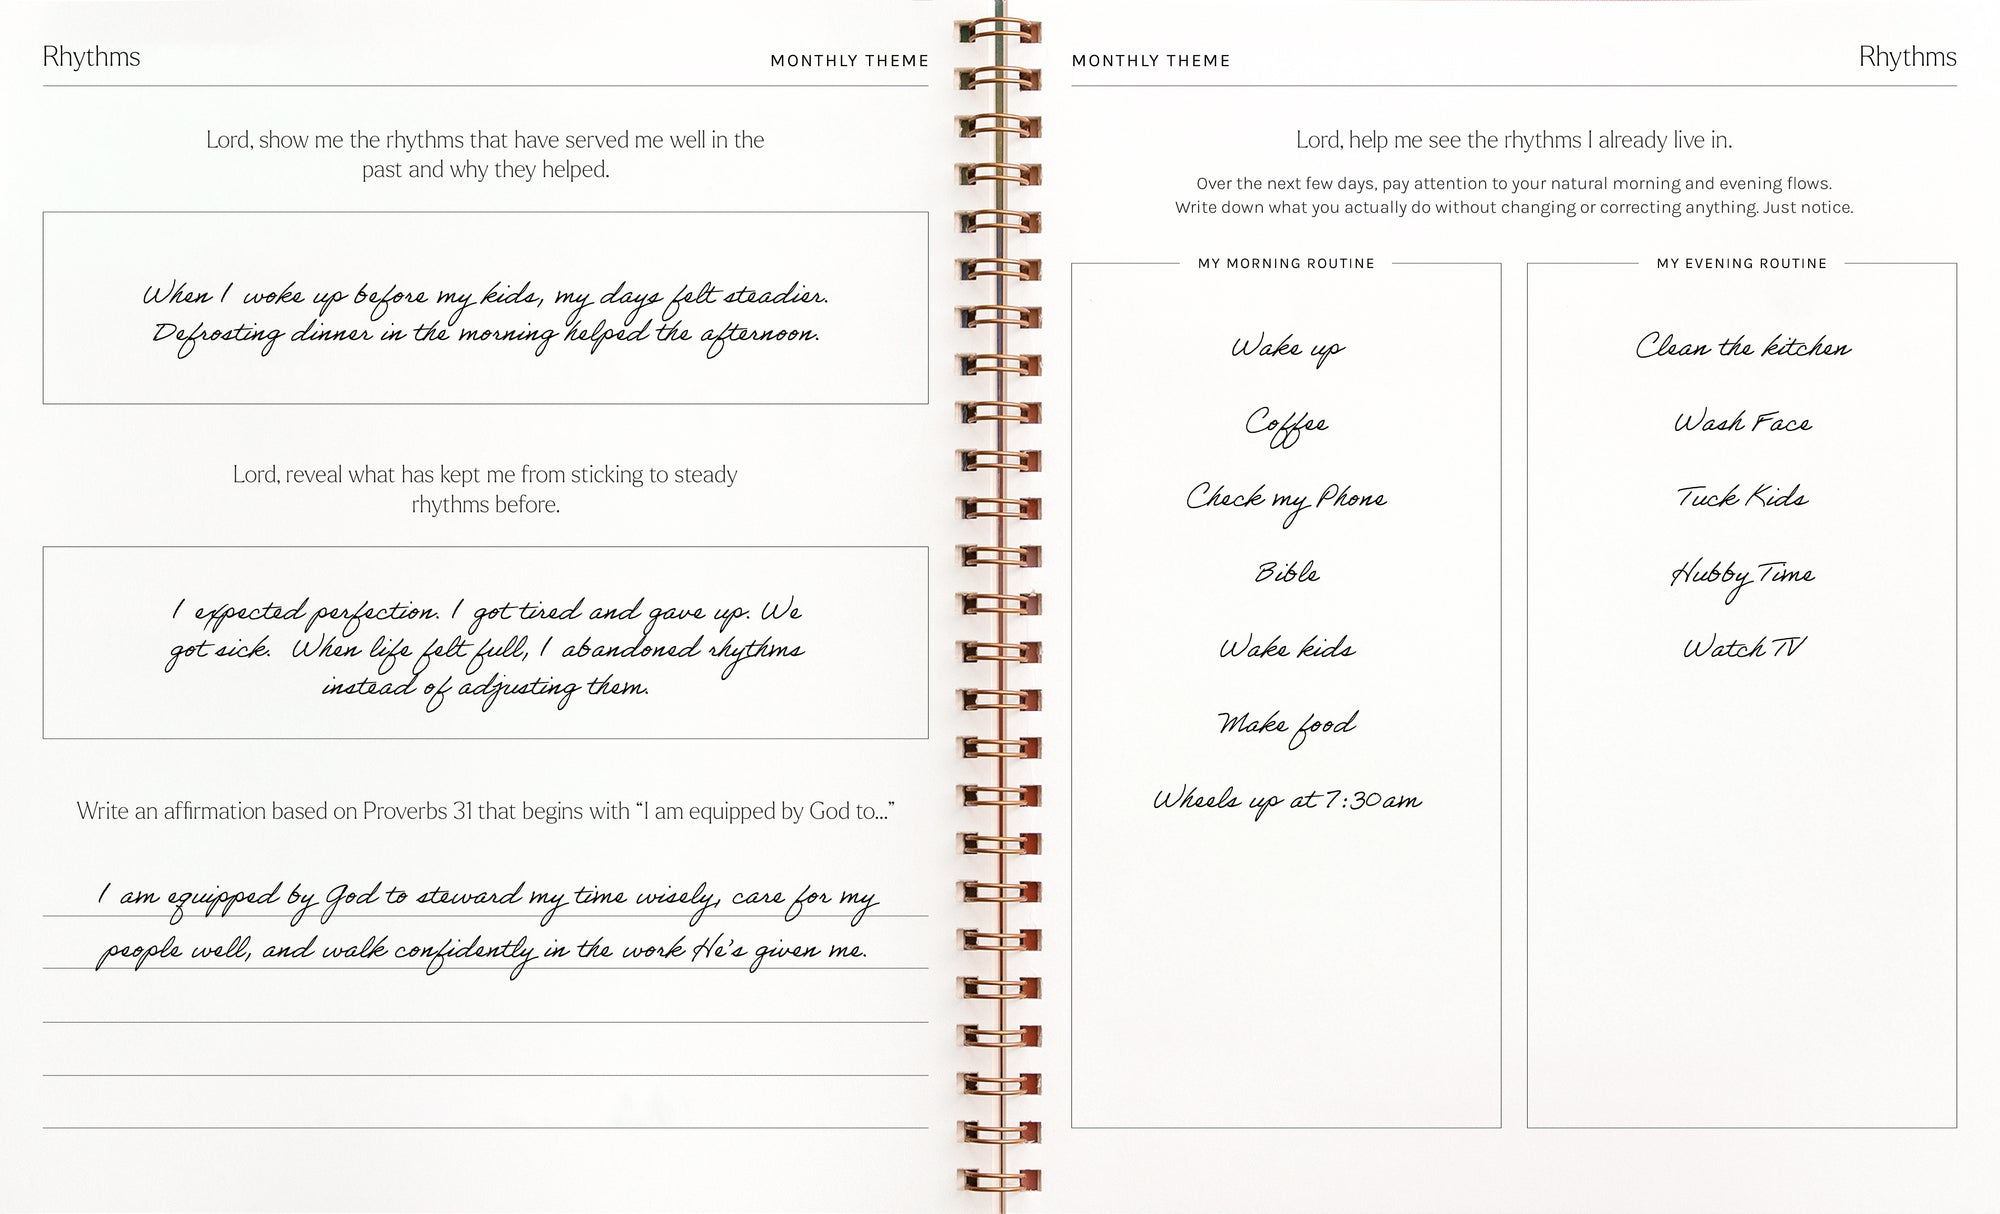 Rhythms
MONTHLY THEME
Lord, show me the rhythms that have served me well in the
past and why they helped.
When I woke up before my kids, my days felt steadier.
Defrosting dinner in the morning helped the afternoon.
Lord, reveal what has kept me from sticking to steady
rhythms before.
I expected perfection. I got tired and gave up. We
got sick. When life felt full, I abandoned rhythms
instead of adjusting them.
Write an affirmation based on Proverbs 31 that begins with “I am equipped by God to...”
I am equipped by God to steward my time wisely, care for my
people well, and walk confidently in the work He's given me.
MONTHLY THEME
Rhythms
Lord, help me see the rhythms I already live in.
Over the next few days, pay attention to your natural morning and evening flows.
Write down what you actually do without changing or correcting anything. Just notice.
MY MORNING ROUTINE
Wake up
Coffee
Check my Phone
Bible
Wake kids
Make food
Wheels up at 7:30am
MY EVENING ROUTINE
Clean the kitchen
Wash Face
Tuck Kids
Hubby Time
Watch TV